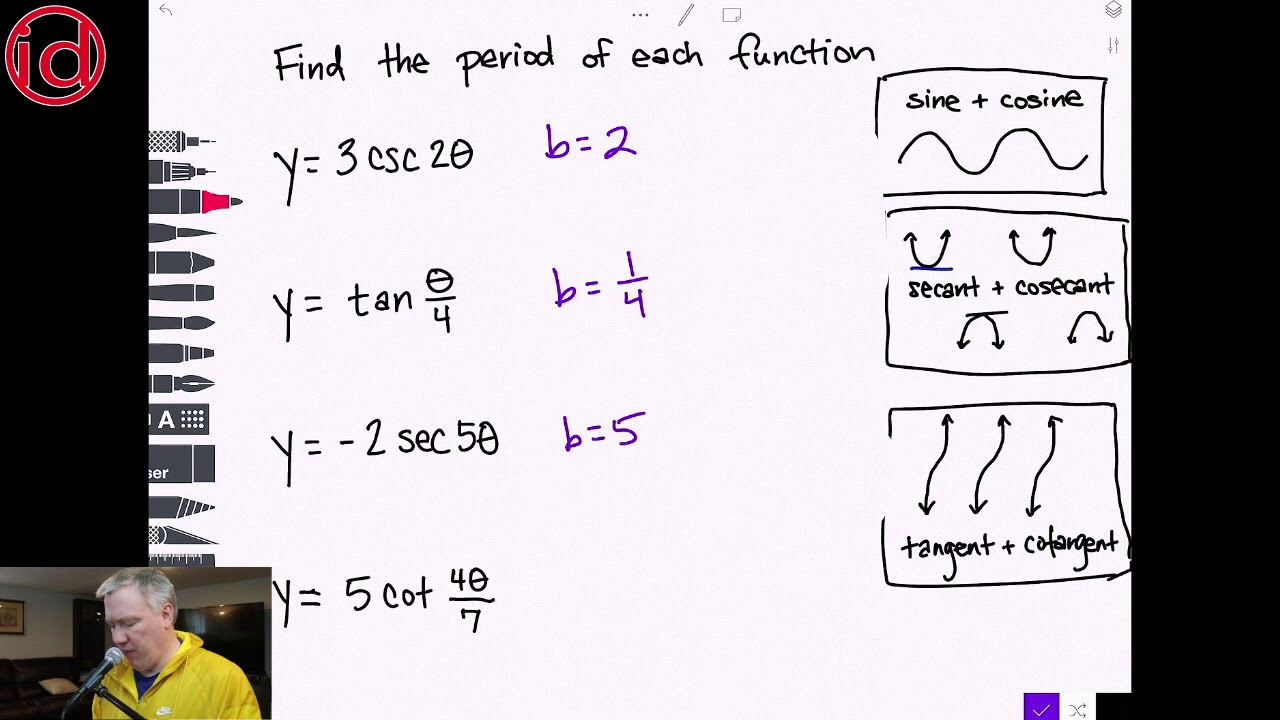 id
Find the period of each function
y = 3 csc 2θ b = 2
y = tan θ/4 b = 1/4
y = -2 sec 5θ b = 5
y = 5 cot 4θ/7
sine + cosine
secant + cosecant
tangent + cotangent
A
ser